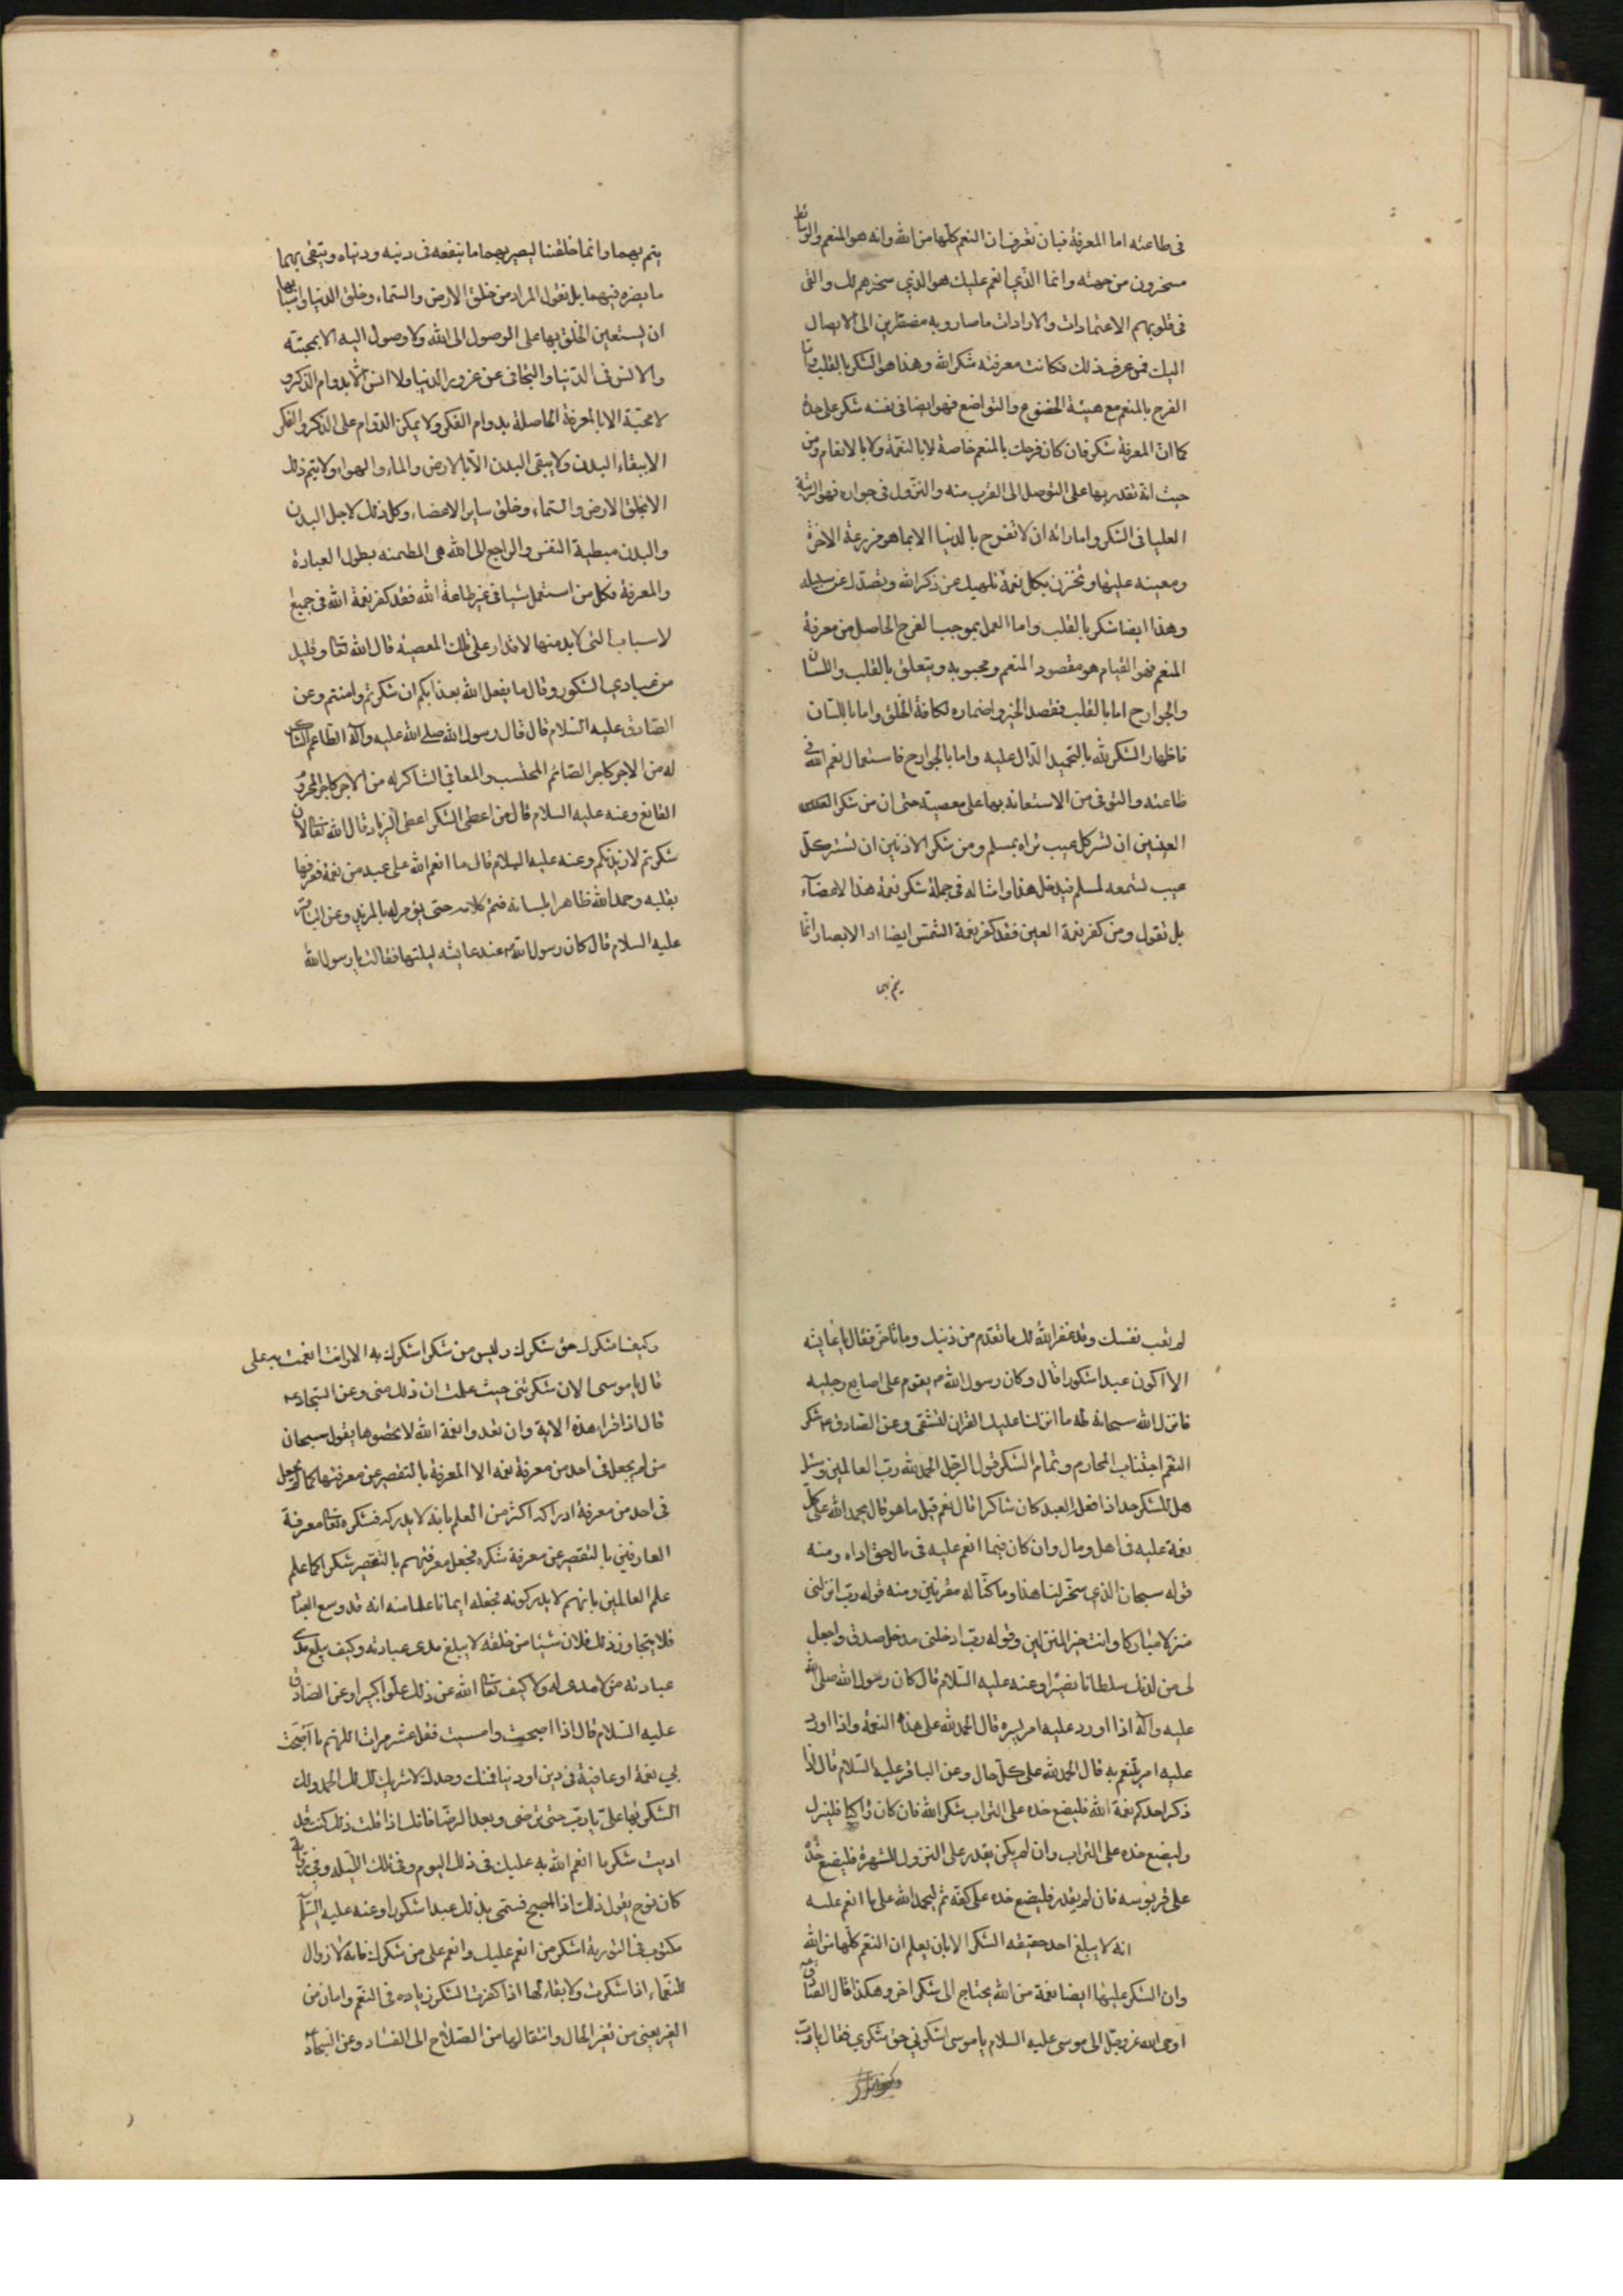 فى طاعته اما المعرفة فبان تعرف ان النعم كلها من الله وانه هو المنعم والوسائط
مسخرون من جهته وانما الذي انعم عليك هو الذي سخرهم لك والقى
فى قلوبهم الاعتقادات والارادات ما صاروا به مضطرين الى الايصال
اليك فمن عرف ذلك فكانت معرفته شكر الله وهذا هو الشكر بالقلب واما
الفرح بالمنعم مع هيئة الخضوع والتواضع فهو ايضا فى نفسه شكر على حدة
كما ان المعرفة شكر فان كان فرحك بالمنعم خاصة لا بالنعمة ولا بالانعام ومن
حيث انه تقدر بها على التوصل الى القرب منه والنزول فى جواره فهو الرتبة
العليا فى الشكر واماراته ان لا تفرح بالدنيا الا بما هو مزرعة الاخرة
ومعينة عليها وتحزن بكل نعمة تلهيك عن ذكر الله وتصدك عن سبيله
وهذا ايضا شكر بالقلب واما العمل بموجب الفرح الحاصل من معرفة
المنعم فهو القيام هو مقصود المنعم ومحبوبه ويتعلق بالقلب واللسان
والجوارح اما بالقلب فقصد الخير واضماره لكافة الخلق واما باللسان
فاظهار الشكر لله بالتحميد الدال عليه واما بالجوارح فاستعمال نعم الله فى
طاعته والتوقى من الاستعانة بها على معصيته حتى ان من شكر
العينين ان تستر كل عيب تراه بمسلم ومن شكر الاذنين ان تستر كل
عيب تسمعه لمسلم فيدخل هذا وامثاله فى جملة شكر نعمة هذا الاعضاء
بل نقول ومن كفر نعمة العين فقد كفر نعمة الشمس ايضا اذ الابصار انما
يتم بهما
يتم بهما وانما خلقتا ليبصر بهما ما ينفعه فى دينه ودنياه ويتقى بهما
ما يضره فيهما بل نقول المراد من خلق الارض والسماء وخلق الدنيا واسبابها
ان يستعين الخلق بها على الوصول الى الله ولا وصول اليه الا بمحبته
والانس فى الدنيا والتجافى عن غرور الدنيا ولا انس الا بدوام الذكر و
لا محبة الا بالمعرفة الحاصلة بدوام الفكر ولا يمكن الدوام على الذكر والفكر
الا ببقاء البدن ولا يبقى البدن الا بالارض والماء والهواء ولا يتم ذلك
الا بخلق الارض والسماء وخلق ساير الاعضاء وكل ذلك لاجل البدن
والبدن مطية النفس والراجع الى الله هى المطمئنة بطول العبادة
والمعرفة فكل من استعمل شيئا فى غير طاعة الله فقد كفر نعمة الله فى جميع
لاسباب التى لابد منها لاقدار على تلك المعصية قال الله تعا وقليل
من عبادي الشكور وقال ما يفعل الله بعذابكم ان شكرتم وامنتم وعن
الصادق عليه السلام قال قال رسول الله صلى الله عليه وآله الطاعم الشاكر
له من الاجر كاجر الصائم المحتسب والمعافى الشاكر له من الاجر كاجر المحروم
القانع وعنه عليه السلام قال من اعطى الشكر اعطى الزيادة قال الله تعالى لان
شكرتم لازيدنكم وعنه عليه السلام قال ما انعم الله على عبد من نعمة فعرفها
بقلبه وحمد الله ظاهرا بلسانه فتم كلامه حتى يؤمر له بالمزيد وعن الباقر
عليه السلام قال كان رسول الله ص عند عايشه ليلتها فقالت يا رسول الله
لم تتعب نفسك وقد غفر الله لك ما تقدم من ذنبك وما تاخر فقال يا عايشه
الا اكون عبدا شكورا قال وكان رسول الله ص يقوم على اصابع رجليه
فانزل الله سبحانه طه ما انزلنا عليك القران لتشقى وعن الصادق ع شكر
النعم اجتناب المحارم وتمام الشكر قول الرجل الحمد لله رب العالمين وسئل
هل للشكر حد اذا فعل العبد كان شاكرا قال نعم قيل ما هو قال يحمد الله على كل
نعمة عليه فى اهل ومال وان كان فيما انعم عليه فى ماله حق اداه ومنه
قوله سبحان الذي سخر لنا هذا وما كنا له مقرنين ومنه قوله رب انزلنى
منزلا مباركا وانت خير المنزلين وقوله رب ادخلنى مدخل صدق واجعل
لى من لدنك سلطانا نصيرا وعنه عليه السلام قال كان رسول الله صلى الله
عليه وآله اذا اورد عليه امر يسره قال الحمد لله على هذه النعمة واذا اورد
عليه امر يغتم به قال الحمد لله على كل حال وعن الباقر عليه السلام قال اذا
ذكر احدكم نعمة الله فليضع خده على التراب شكر الله فان كان راكبا فلينزل
وليضع خده على التراب وان لم يكن يقدر على النزول للشهرة فليضع خده
على قربوسه فان لم يقدر فليضع خده على كفه ثم ليحمد الله على ما انعم عليه
انه لا يبلغ احد حقيقة الشكر الا بان يعلم ان النعم كلها من الله
وان الشكر عليها ايضا نعمة من الله يحتاج الى شكر اخر وهكذا قال الصادق
اوحى الله عز وجل الى موسى عليه السلام يا موسى اشكرني حق شكري فقال يا رب
وكيف اشكرك حق شكرك وليس من شكر اشكرك به الا وانت انعمت به على
قال يا موسى الان شكرتنى حيث علمت ان ذلك منى وعن السجاد ع
قال اذا قرا هذه الاية وان تعدوا نعمة الله لا تحصوها يقول سبحان
من لم يجعل فى احد من معرفة نعمه الا المعرفة بالتقصير عن معرفتها كما لم يجعل
فى احد من معرفة ادراكه اكثر من العلم بانه لا يدركه فشكره تعا معرفة
العارفين بالتقصير عن معرفة شكره فجعل معرفتهم بالتقصير شكرا كما علم
علم العالمين بانهم لا يدركونه فجعله ايمانا علما منه انه قد وسع العباد
فلا يتجاوز ذلك فلان شيئا من خلقه لا يبلغ مدى عبادته وكيف يبلغ مدى
عبادته من لا مدى له ولا كيف تعا الله عن ذلك علوا كبيرا وعن الصادق
عليه السلام قال اذا اصبحت وامسيت فقل عشر مرات اللهم ما اصبحت
بي نعمة او عافية فى دين او دنيا فمنك وحدك لا شريك لك لك الحمد ولك
الشكر بها على يا رب حتى ترضى وبعد الرضا فانك اذا قلت ذلك كنت قد
اديت شكر ما انعم الله به عليك فى ذلك اليوم وفى تلك الليله وفى رواية
كان نوح يقول ذلك اذا اصبح فسمى بذلك عبدا شكورا وعنه عليه السلام
مكتوب فى التورية اشكر من انعم عليك وانعم على من شكرك فانه لا زوال
للنعماء اذا شكرت ولا بقاء لها اذا كفرت الشكر زيادة فى النعم وامان من
الغير يعنى من تغير الحال وانتقالها من الصلاح الى الفساد وعن السجاد